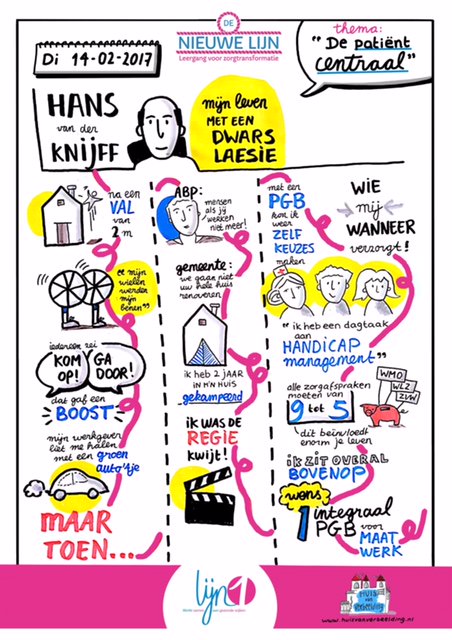 DE
NIEUWE LIJN
Leergang voor zorgtransformatie
thema:
"De patiënt
centraal"
Di 14-02-2017
HANS
van der
KNIJFF
mijn leven
MET EEN
DWARS
LAESIE
na een
VAL
van
2 m
"mijn
wielen
werden
mijn
benen"
iedereen zei
KOM
OP!
GA
DOOR!
dat gaf een
BOOST
mijn werkgever
liet me halen
met een groen
auto'tje
MAAR
TOEN...
ABP:
mensen
als jij
werken
niet meer!
gemeente:
we gaan niet
uw hele huis
renoveren
ik heb 2 JAAR
in m'n HUIS
gekampeerd
IK WAS DE
REGIE
KWIJT!
met een
PGB
kon ik
weer
ZELF
KEUZES
maken
WIE
mij
WANNEER
verzorgt!
"ik heb een dagtaak
aan
HANDICAP
management"
WMO
WLZ
ZVW
alle zorgafspraken
moeten van
9 tot 5
dit beïnvloedt
enorm je leven
IK ZIT OVERAL
BOVENOP
wens
1 integraal
PGB voor
MAAT
WERK
lijn1
HUIS
van
verbeelding
www.huisvanverbeelding.nl